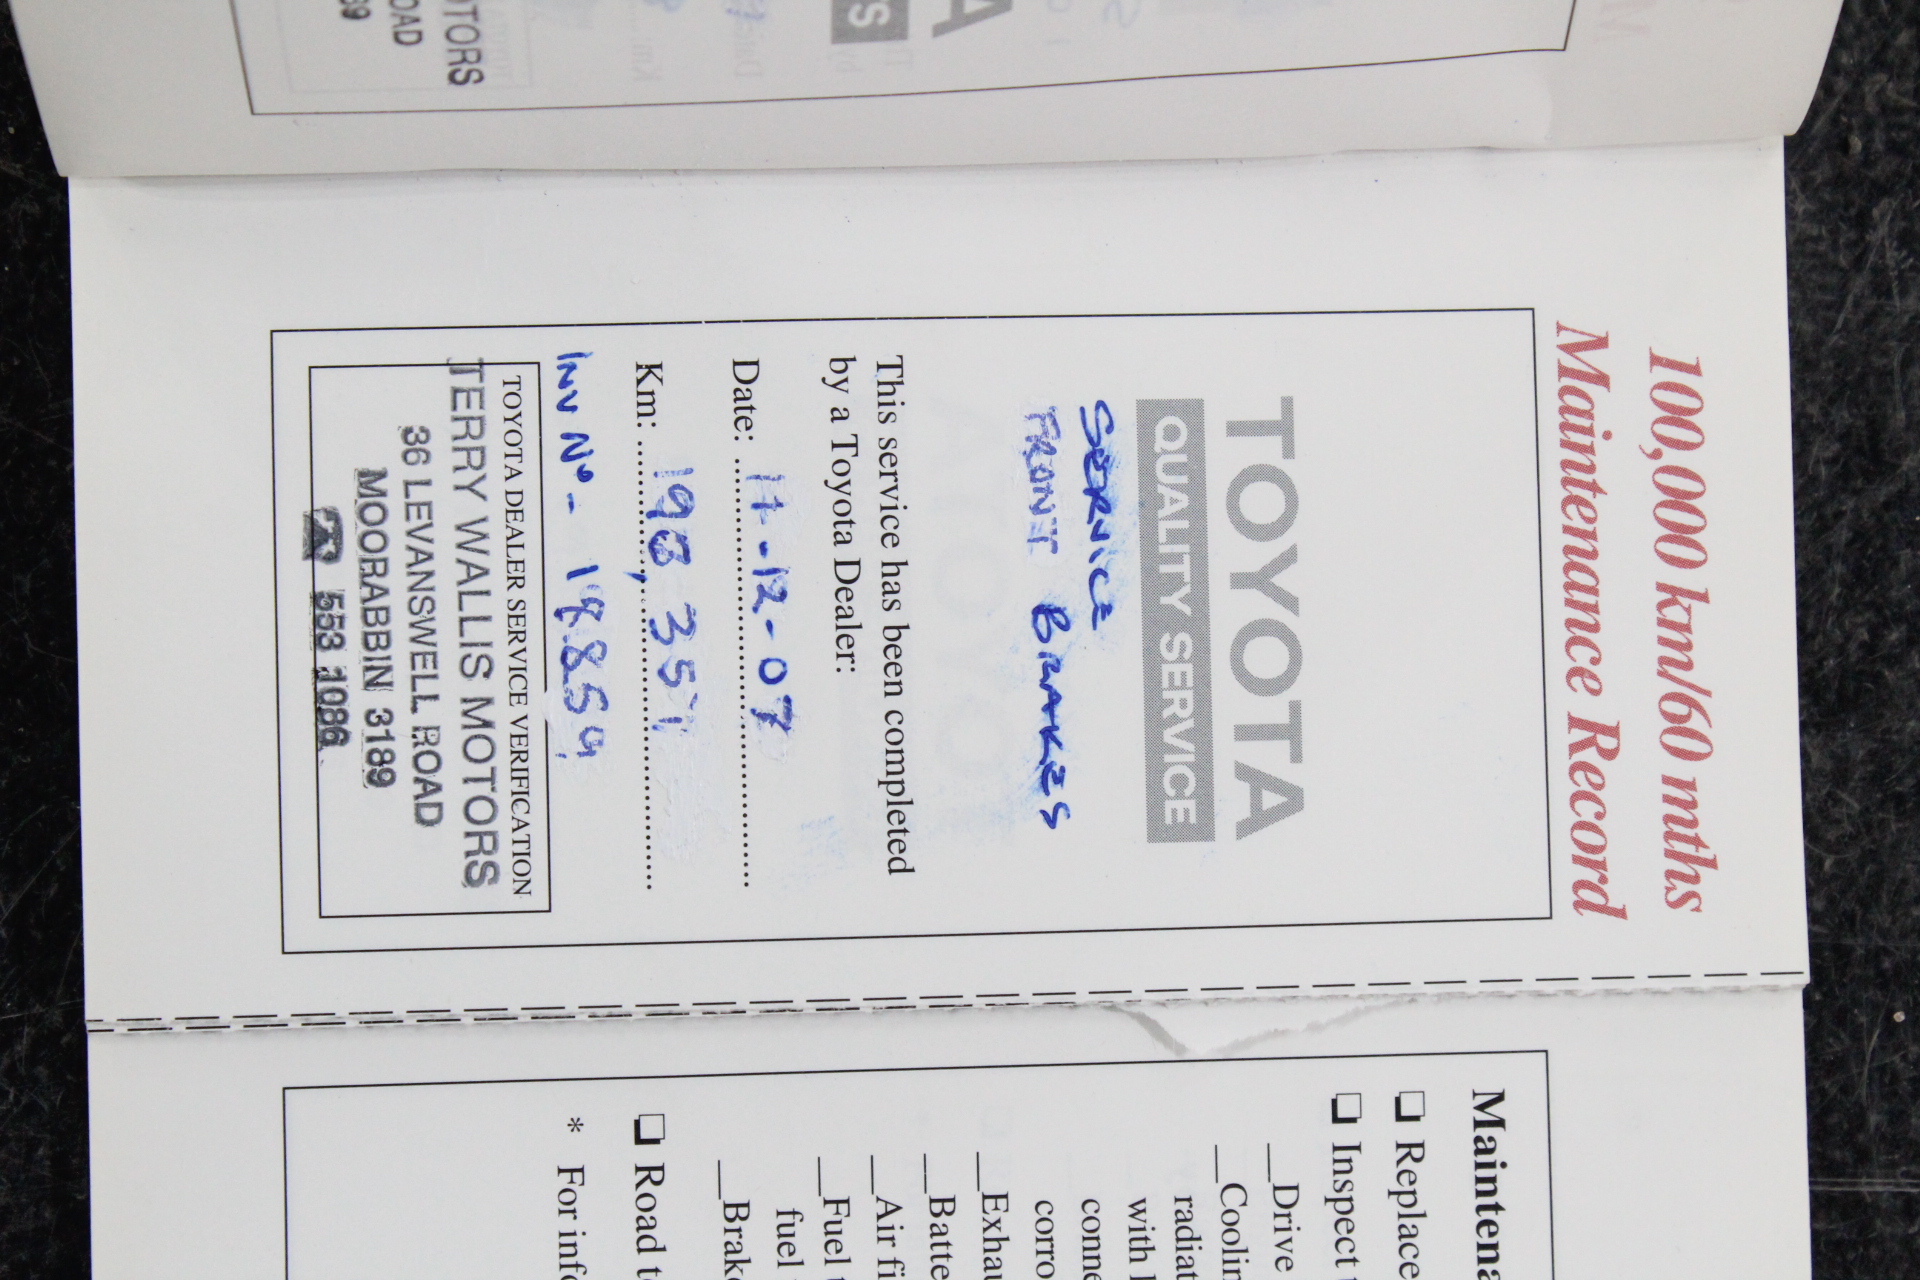 TORS
OAD
100,000 km/60 mths
Maintenance Record
TOYOTA
QUALITY SERVICE
SERVICE
FRONT BRAKES
This service has been completed
by a Toyota Dealer:
Date: 17-12-07
Km: 198,351
INV Nº - 19859
TOYOTA DEALER SERVICE VERIFICATION
TERRY WALLIS MOTORS
36 LEVANSWELL ROAD
MOORABBIN 3189
☎ 553 1086
Maintena
❏ Replace
❏ Inspect
__Drive
__Coolin
radiat
with
conne
corro
__Exhau
__Batte
__Air fi
__Fuel
fuel
__Brake
❏ Road t
* For info